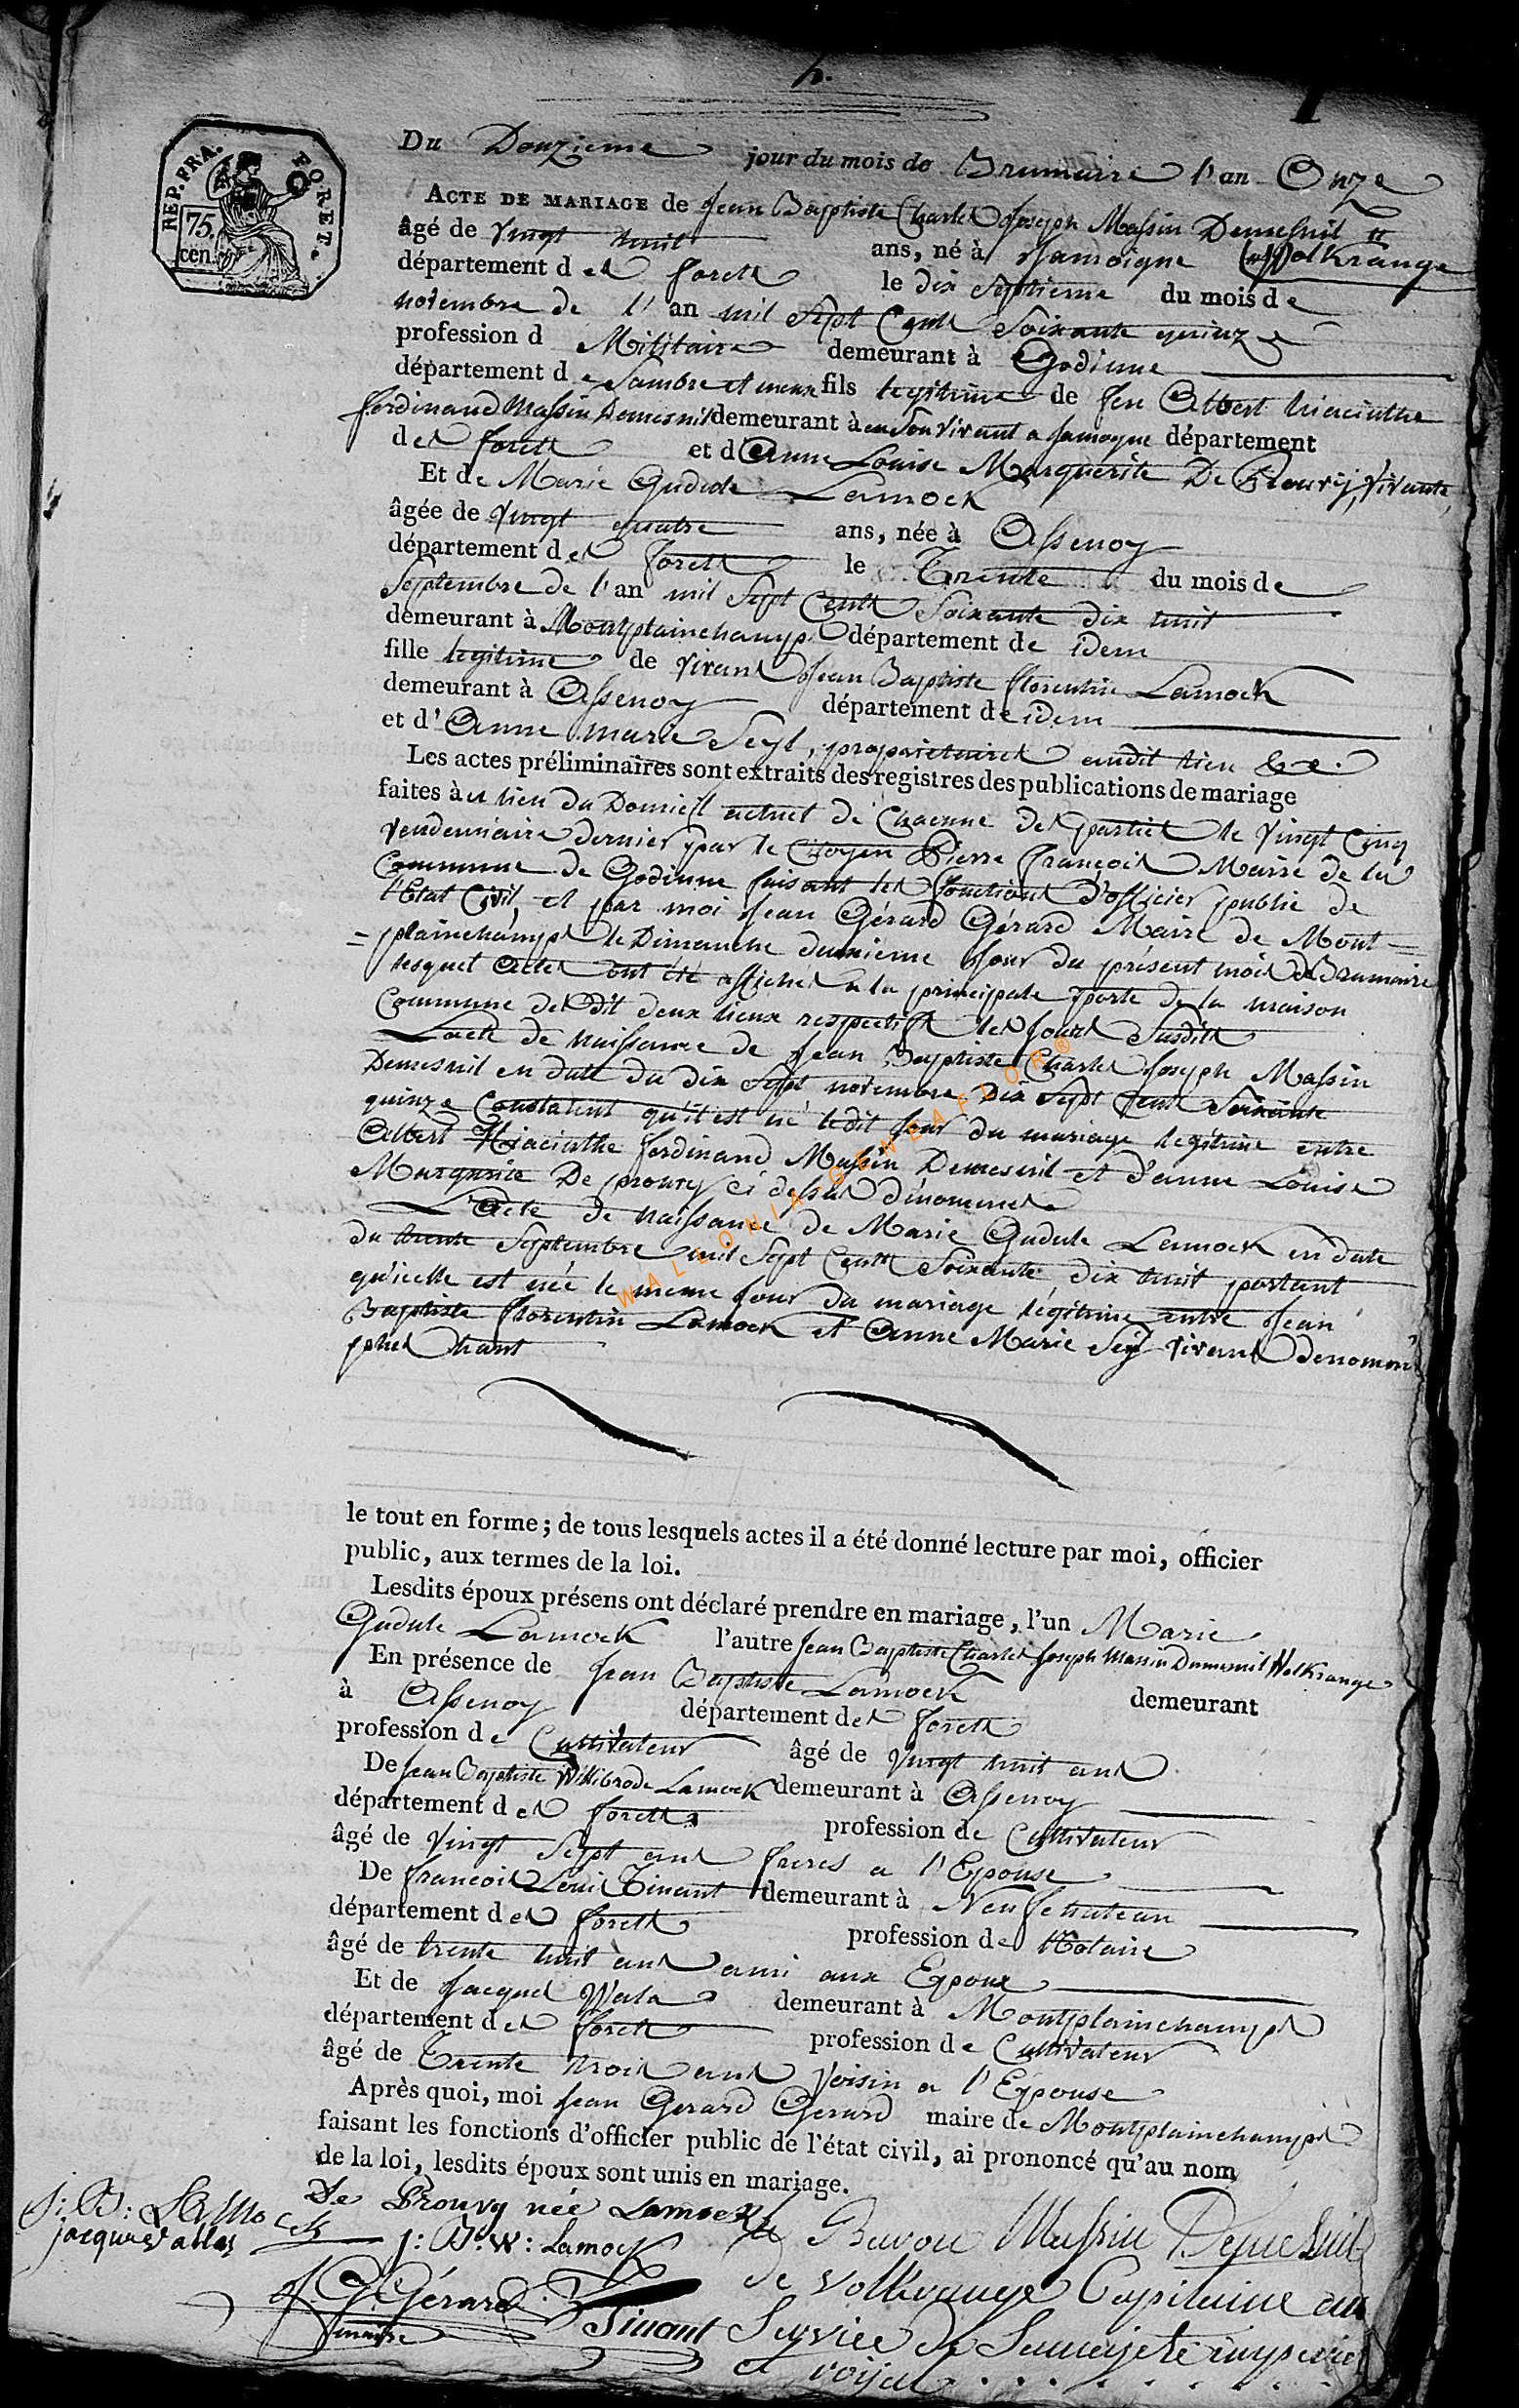 h.
1
REP. FRA.
FORET.
75.
cen.
Du Douzieme jour du mois de Brumaire l'an Onze
ACTE DE MARIAGE de Jean Baptiste Charles Joseph Massin Demesnil
Wolkrange
âgé de Vingt huit ans, né à Jamoigne
département des forets le dix Septieme du mois de
novembre de l'an mil Sept Cents Soixante quinze
profession d Militaire demeurant à Godinne
département de Sambre et meuse fils legitime de feu Albert hiacinthe
ferdinand Massin Demesnil demeurant à en Son Vivant a Jamogne département
des forets et d'Anne Louise Marguerite De Prouvy, Vivante,
Et de Marie Gudule Lamock
âgée de Vingt quatre ans, née à Assenoy
département des forets le Trente du mois de
Septembre de l'an mil Sept Cents Soixante dix huit
demeurant à Montplainchamps département de idem
fille legitime de Vivans Jean Baptiste florentin Lamock
demeurant à Assenoy département de idem
et d'Anne marie Seyl, proprietaires audit lieu &c.
Les actes préliminaires sont extraits des registres des publications de mariage
faites à u lieu du Domicil actuel de Chacune des parties le Vingt Cinq
Vendemiaire dernier par le Citoyen Pierre francois Maire de la
Commune de Godinne faisant les fonctions d'officier public de
l'Etat Civil, et par moi Jean Gérard Gérard Maire de Mont=
=plainchamps le Dimanche dixieme Jour du présent mois de Brumaire
lesquel Actes ont été affichés a la principale porte de la maison
Commune des Dit deux lieux respectifs les Jours Susdits
L'acte de naissance de Jean Baptiste Charles Joseph Massin
Demesnil en date du dix Sept novembre Dix Sept Cent Soixante
quinze Constatent qu'il est né ledit Jour du mariage legitime entre
Albert Hiacinthe ferdinand Massin Demesnil et d'anne Louise
Margurite De prouvy ci dessus dénommés
L'Acte de naissance de Marie Gudule Lamock en date
du trente Septembre mil Sept Cents Soixante dix huit portant
qu'icelle est née le meme Jour du mariage légitime entre Jean
Baptiste florentin Lamock et Anne Marie Seyl Vivans denommés
plus haut
WALLONIA-GENEAFLOR®
le tout en forme; de tous lesquels actes il a été donné lecture par moi, officier
public, aux termes de la loi.
Lesdits époux présens ont déclaré prendre en mariage, l'un Marie
Gudule Lamock l'autre Jean Baptiste Charles Joseph Massin Dumesnil Wolkrange
En présence de Jean Baptiste Lamock demeurant
à Assenoy département des forets
profession de Cultivateur âgé de Vingt huit ans
De Jean Baptiste Willibrode Lamock demeurant à Assenoy
département des forets profession de Cultivateur
âgé de Vingt Sept ans freres a l'Epouse
De francois Louis Tinant demeurant à Neufchateau
département des forets profession de Notaire
âgé de trente huit ans ami aux Epoux
Et de Jacques Wala demeurant à Montplainchamps
département des forets profession de Cultivateur
âgé de Trente trois ans Voisin a l'Epouse
Après quoi, moi Jean Gerard Gerard maire de Montplainchamps
faisant les fonctions d'officier public de l'état civil, ai prononcé qu'au nom
de la loi, lesdits époux sont unis en mariage.
De Prouvy née Lamock
J: B: Lamock
jacques
J: B: W: Lamock
Le Baron Massin Demesnil
de Volkrange Capitaine au
J. G. Gérard
maire
Tinant
Service de Samajeté imperial
et roijal